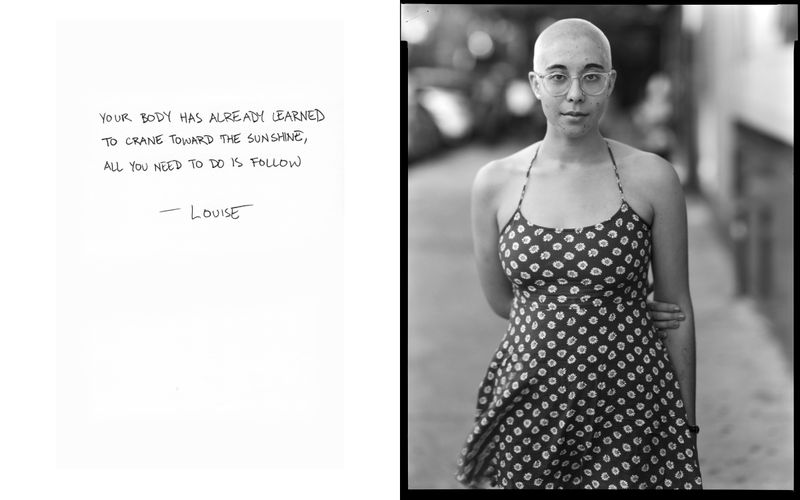 YOUR BODY HAS ALREADY LEARNED
TO CRANE TOWARD THE SUNSHINE,
ALL YOU NEED TO DO IS FOLLOW
— LOUISE